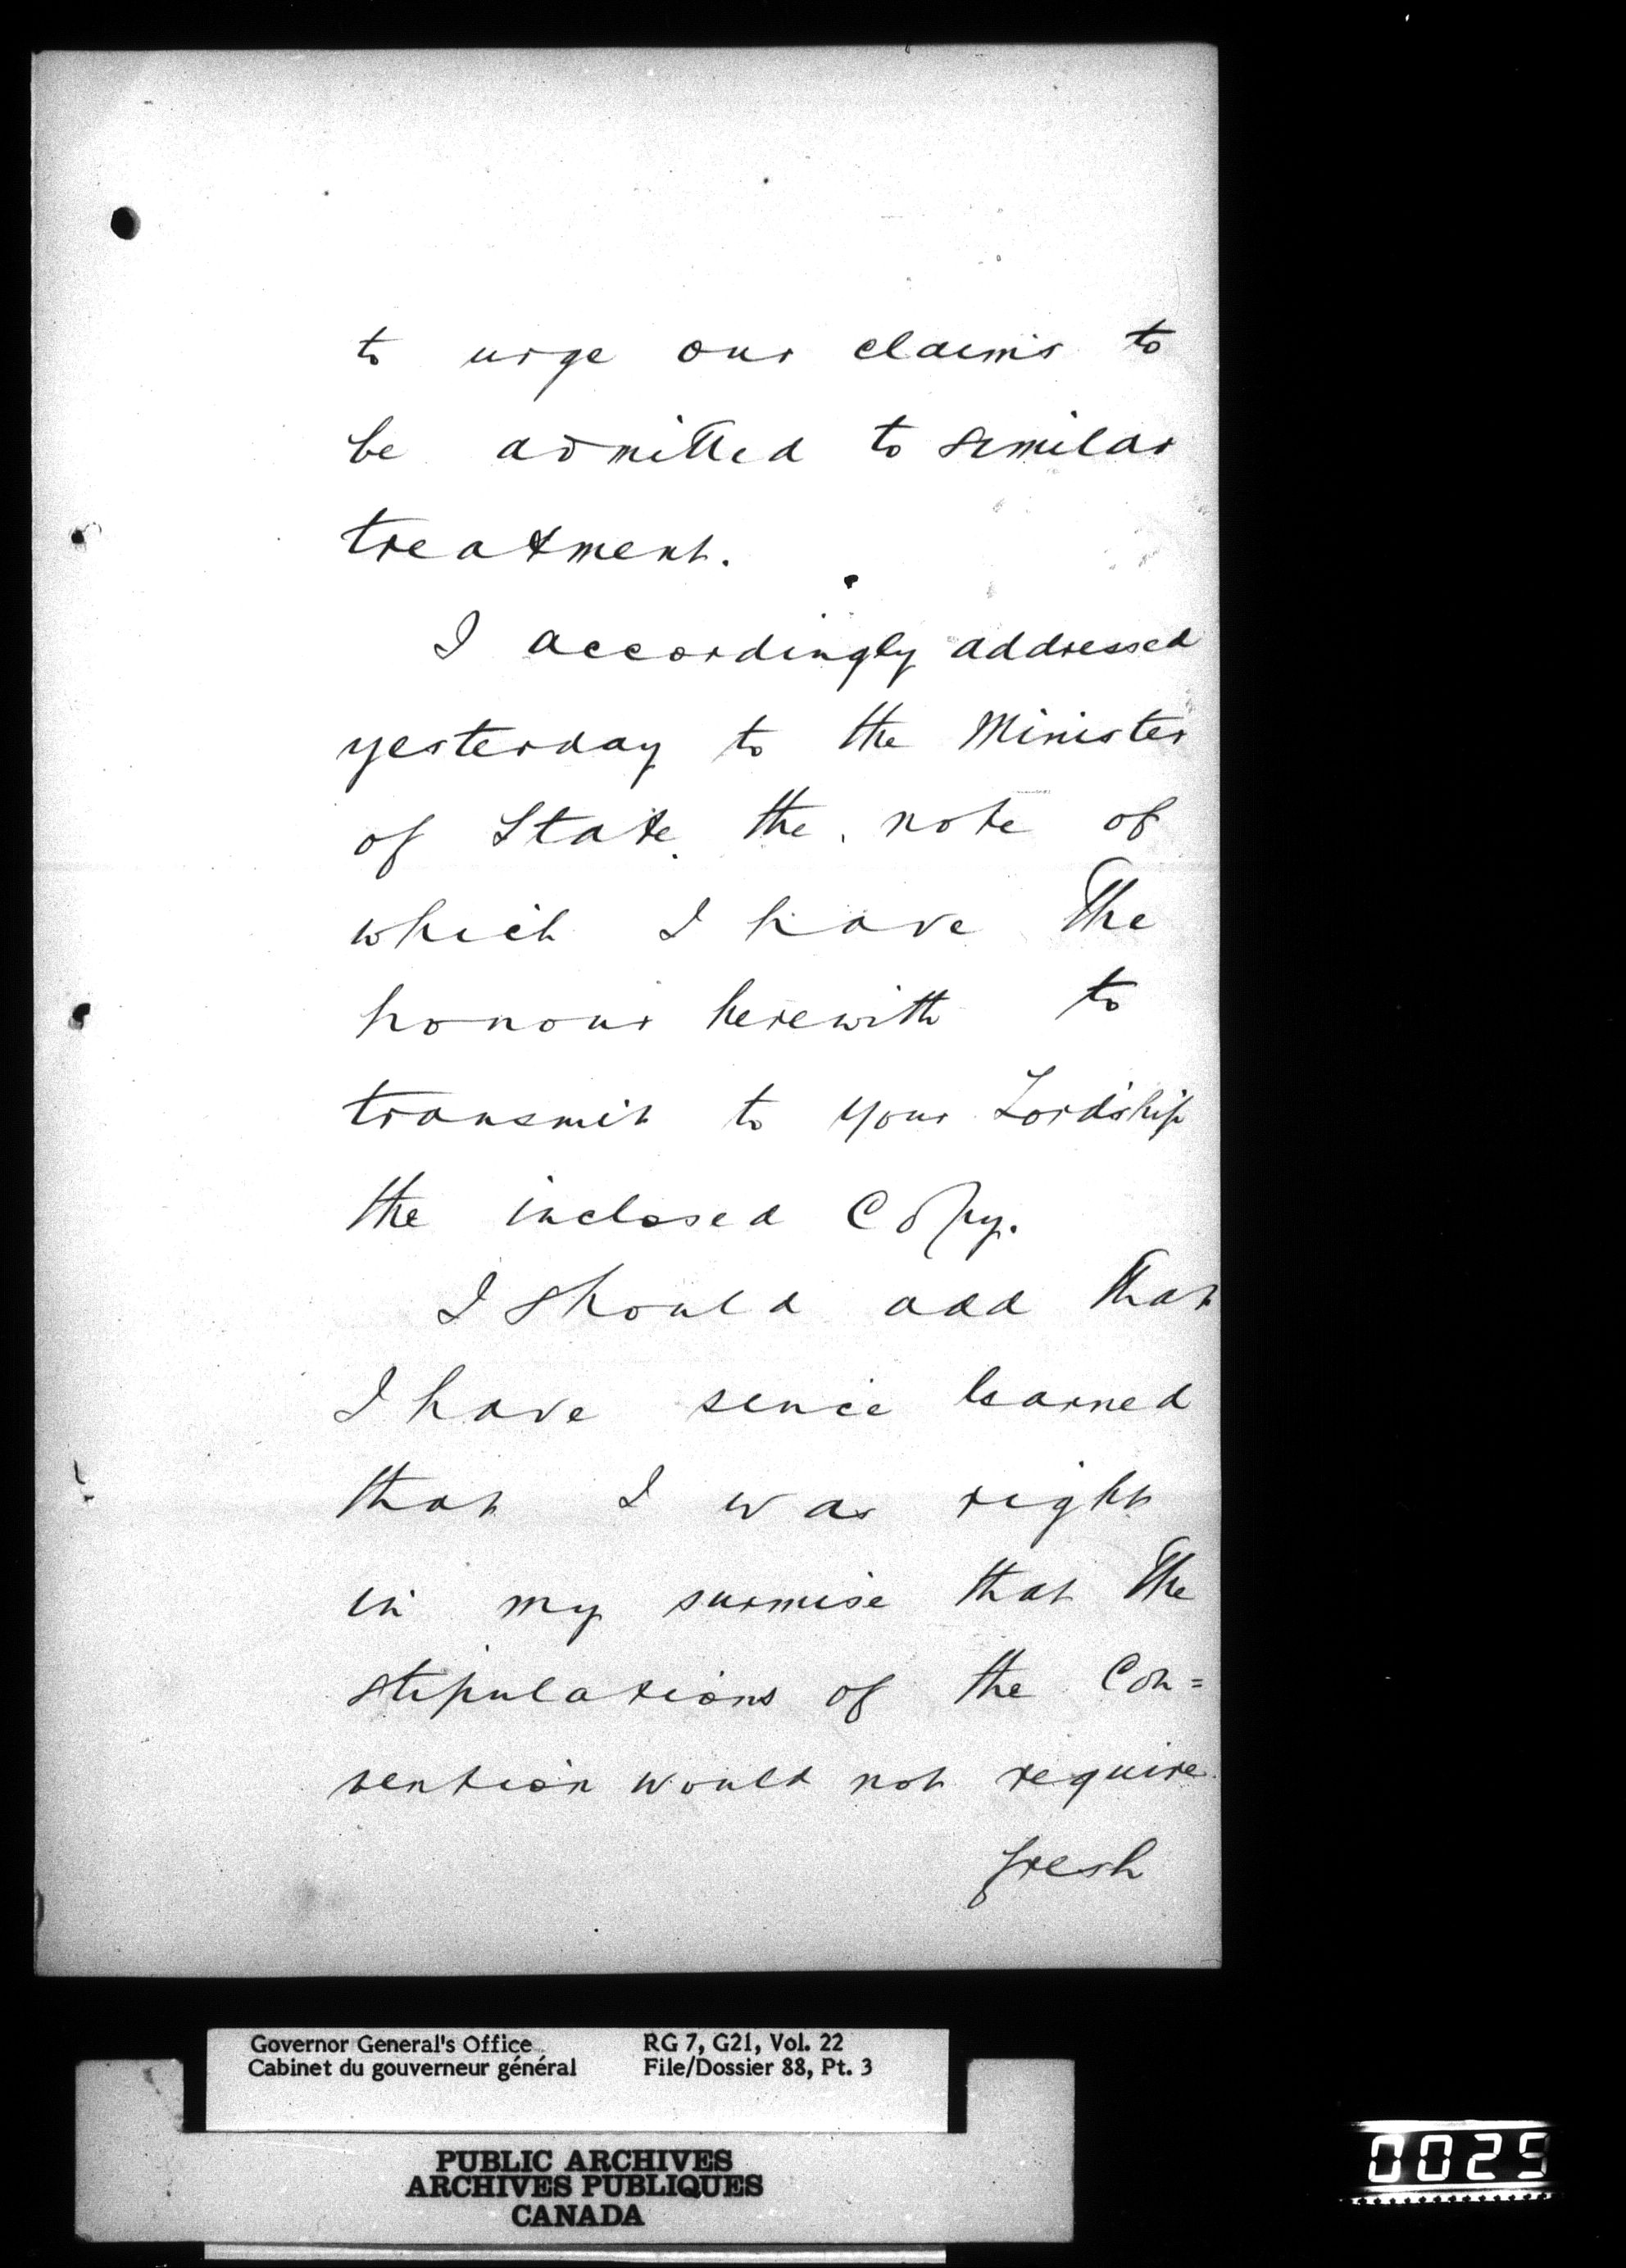 to urge our claims to
be admitted to similar
treatment.
I accordingly addressed
yesterday to the Minister
of State the note of
which I have the
honour herewith to
transmit to your Lordship
the inclosed Copy.
I should add that
I have since learned
that I was right
in my surmise that the
stipulations of the Con=
vention would not require
fresh
Governor General's Office
Cabinet du gouverneur général
RG 7, G21, Vol. 22
File/Dossier 88, Pt. 3
PUBLIC ARCHIVES
ARCHIVES PUBLIQUES
CANADA
0025